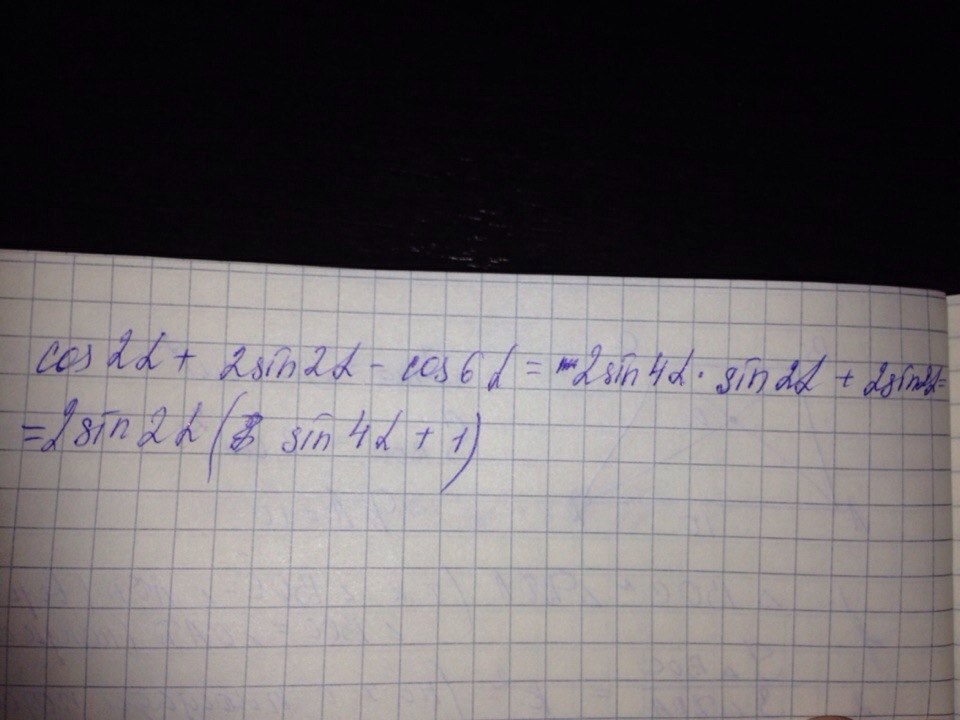 cos 2α + 2sin2α - cos 6α = 2sin4α · sin2α + 2sin2α =
= 2sin2α ( sin4α + 1)